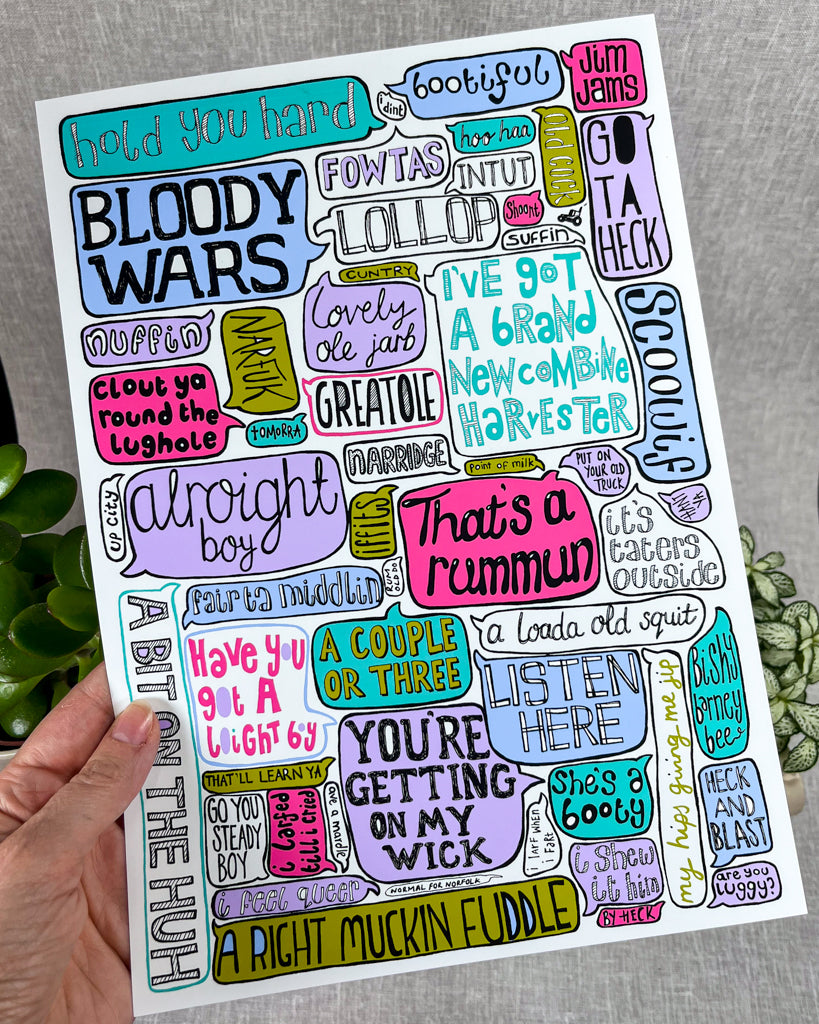 hold you hard
i dint
bootiful
Jim
Jams
FOWTAS
hoo haa
OLD COCK
GO
TA
HECK
BLOODY
WARS
INTUT
LOLLOP
Shoont
SUFFIN
CUNTRY
I'VE GOT
A BRAND
NEW COMBINE
HARVESTER
nuffin
NARFUK
Lovely
ole jarb
Scoowif
clout ya
round the
lughole
TOMORRA
GREATOLE
NARRIDGE
point of milk
PUT ON
YOUR OLD
TRUCK
UP CITY
alroight
boy
IFFIES
That's a
rummun
it's
taters
outside
fairta middlin
RUM
OLD DO
A BIT ON THE HUH
Have you
got A
LOIGHT boy
A COUPLE
OR THREE
a loada old squit
LISTEN
HERE
my hips giving me jip
Bishy
barney
bee
THAT'LL LEARN YA
YOU'RE
GETTING
ON MY
WICK
GO YOU
STEADY
BOY
i larfed
till i cried
ave a mardle
She's a
booty
HECK
AND
BLAST
i larf when
i fart
i shew
it him
are you
luggy?
i feel queer
NORMAL FOR NORFOLK
BY-HECK
A RIGHT MUCKIN FUDDLE